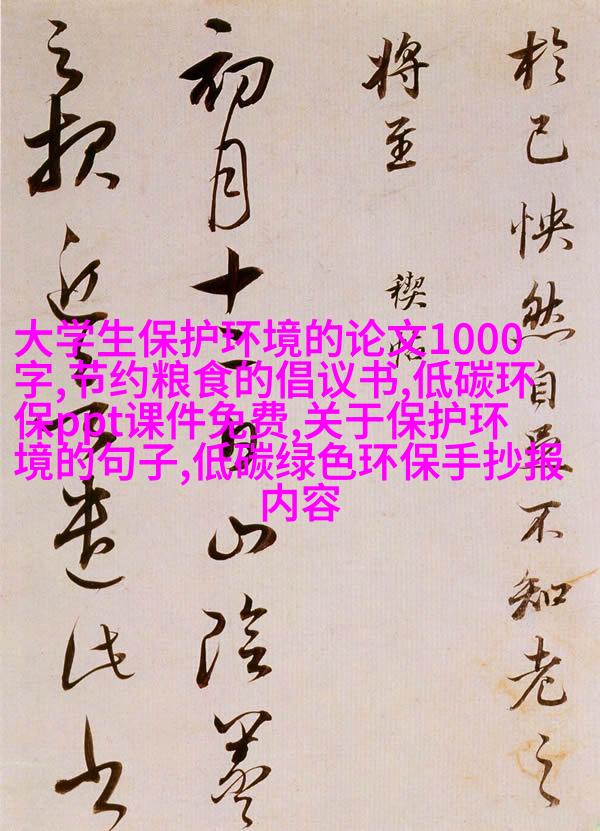 大学生保护环境的论文1000
字,节约粮食的倡议书,低碳环
保ppt课件免费,关于保护环
境的句子,低碳绿色环保手抄报
内容
於己怏然自足不知老之
將至
禊帖
初月十二日山陰羲
之报近欲遣此书